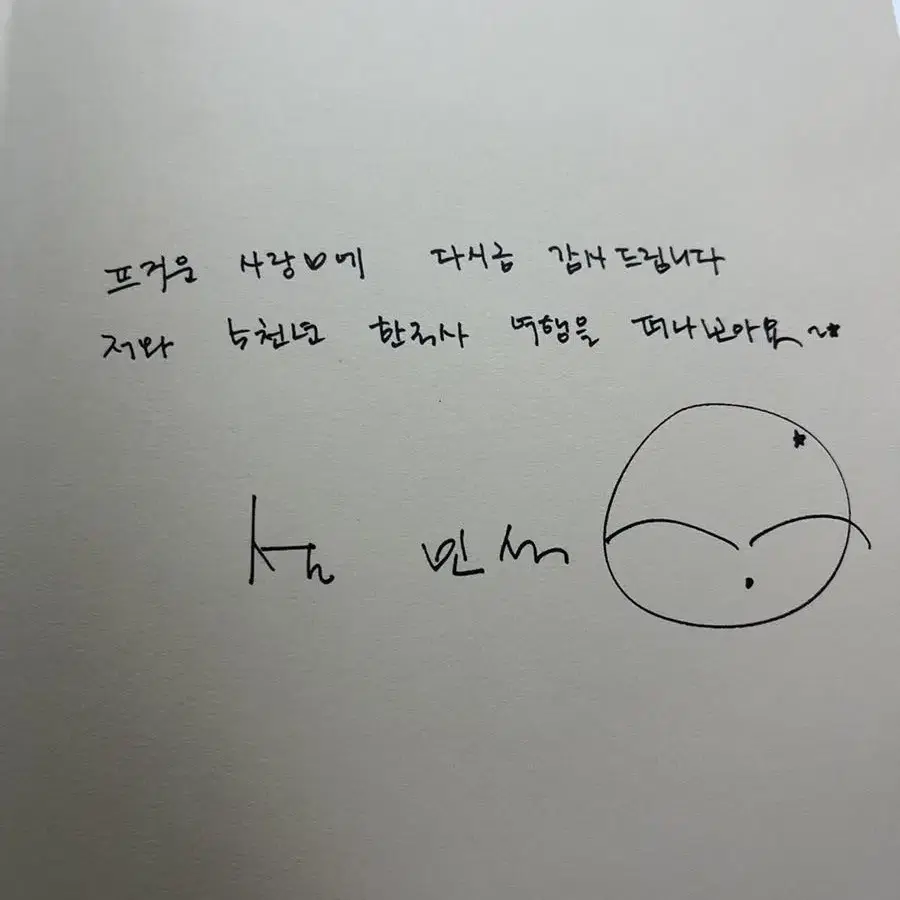 뜨거운 사랑♡에 다시금 감사드립니다
저와 5천년 한국사 여행을 떠나보아요~*
민석